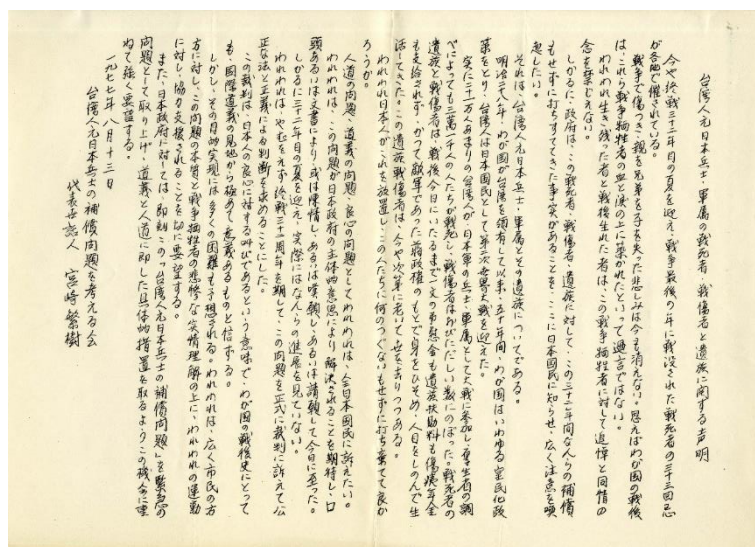 台湾人元日本兵士・軍属の戦死者、戦傷者と遺族に関する声明
今や終戦三十二年目の夏を迎え、戦争最後の年に戦没された戦死者の三十三回忌
が各地で催されている。
戦争で傷つき、親を兄弟を子を失った悲しみは今も消えない。思えばわが国の戦後
は、これら戦争犠牲者の血と涙の上に築かれたといって過言ではない。
われわれ生き残った者と戦後生れた者は、この戦争犠牲者に対して追悼と同情の
念を禁じえない。
しかるに、政府は、この戦死者、戦傷者、遺族に対して、この三十二年間なんらの補償
もせずに打ちすててきた事実があることを、ここに日本国民に知らせ、広く注意を喚
起したい。
それは、台湾人元日本兵士・軍属とその遺族についてである。
明治二十八年、わが国が台湾を領有して以来、五十年間、わが国はいわゆる皇民化政
策をとり、台湾人は日本国民として第二次世界大戦を迎えた。
実に二十一万人あまりの台湾人が、日本軍の兵士・軍属として大戦に参加し、厚生省の調
べによっても三萬一千人の人たちが戦死し、戦傷者はおびただしい数にのぼった。戦死者の
遺族と戦傷者は、戦後今日にいたるまで一文の弔慰金も遺族扶助料も傷病年金
も支給されず、かつて敵軍であった蒋政権のもとで身をひそめ、人目をしのんで生
活してきた。この遺族戦傷者は、今や次第に老いて、世を去りつつある。
われわれ日本人が、これを放置し、この人たちに何のつぐないもせずに打ち棄てて良か
ろうか。
人道の問題、道義の問題、良心の問題としてわれわれは、全日本国民に訴えたい。
われわれは、この問題が日本政府の主体的意思により解決されることを期待し、口
頭あるいは文書により、或は陳情し、あるいは嘆願し、あるいは請願して今日に至った。
しかるに三十二年目の夏を迎え、実際にはなんらの進展を見ていない。
われわれは、やむをえず終戦三十二周年を期して、この問題を正式に裁判に訴えて公
正な法と正義による判断を求めることにした。
この裁判は、日本人の良心に対する叫びであるという意味で、わが国の戦後史にとって
も、国際道義の見地から極めて意義あるものと信ずる。
しかし、その目的実現には多くの困難も予想される。われわれは、広く市民の方
方に対し、この問題の本質と戦争犠牲者の悲惨な実情理解の上に、われわれの運動
に対し、協力支援されることを切に要望する。
また、日本政府に対しては、即刻この「台湾人元日本兵士の補償問題」を緊急の
問題として取り上げ、道義と人道に即した具体的措置を取るようこの機会に重
ねて強く要望する。
一九七七年八月十三日
台湾人元日本兵士の補償問題を考える会
代表世話人 宮崎繁樹